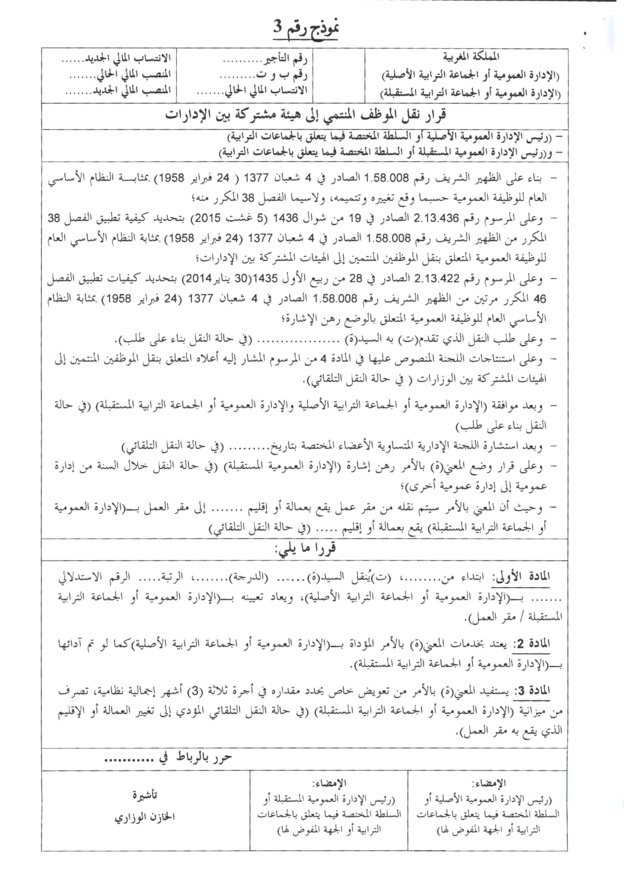 نموذج رقم 3
المملكة المغربية
(الإدارة العمومية أو الجماعة الترابية الأصلية)
(الإدارة العمومية أو الجماعة الترابية المستقبلة)
رقم التأجير..........
رقم ب و ت..........
الانتساب المالي الحالي.......
الانتساب المالي الجديد......
المنصب المالي الحالي.......
المنصب المالي الجديد......
قرار نقل الموظف المنتمي إلى هيئة مشتركة بين الإدارات
– (رئيس الإدارة العمومية الأصلية أو السلطة المختصة فيما يتعلق بالجماعات الترابية)
– و(رئيس الإدارة العمومية المستقبلة أو السلطة المختصة فيما يتعلق بالجماعات الترابية)
– بناء على الظهير الشريف رقم 1.58.008 الصادر في 4 شعبان 1377 ( 24 فبراير 1958) بمثابة النظام الأساسي
العام للوظيفة العمومية حسبما وقع تغييره وتتميمه، ولاسيما الفصل 38 المكرر منه؛
– وعلى المرسوم رقم 2.13.436 الصادر في 19 من شوال 1436 (5 غشت 2015) بتحديد كيفية تطبيق الفصل 38
المكرر من الظهير الشريف رقم 1.58.008 الصادر في 4 شعبان 1377 (24 فبراير 1958) بمثابة النظام الأساسي العام
للوظيفة العمومية المتعلق بنقل الموظفين المنتمين إلى الهيئات المشتركة بين الإدارات؛
– وعلى المرسوم رقم 2.13.422 الصادر في 28 من ربيع الأول 1435(30 يناير2014) بتحديد كيفيات تطبيق الفصل
46 المكرر مرتين من الظهير الشريف رقم 1.58.008 الصادر في 4 شعبان 1377 (24 فبراير 1958) بمثابة النظام
الأساسي العام للوظيفة العمومية المتعلق بالوضع رهن الإشارة؛
– وعلى طلب النقل الذي تقدم(ت) به السيد(ة) ................. (في حالة النقل بناء على طلب).
– وعلى استنتاجات اللجنة المنصوص عليها في المادة 4 من المرسوم المشار إليه أعلاه المتعلق بنقل الموظفين المنتمين إلى
الهيئات المشتركة بين الوزارات ( في حالة النقل التلقائي).
– وبعد موافقة (الإدارة العمومية أو الجماعة الترابية الأصلية والإدارة العمومية أو الجماعة الترابية المستقبلة) (في حالة
النقل بناء على طلب)
– وبعد استشارة اللجنة الإدارية المتساوية الأعضاء المختصة بتاريخ......... (في حالة النقل التلقائي)
– وعلى قرار وضع المعني(ة) بالأمر رهن إشارة (الإدارة العمومية المستقبلة) (في حالة النقل خلال السنة من إدارة
عمومية إلى إدارة عمومية أخرى)؛
– وحيث أن المعني بالأمر سيتم نقله من مقر عمل يقع بعمالة أو إقليم ....... إلى مقر العمل بــ(الإدارة العمومية
أو الجماعة الترابية المستقبلة) يقع بعمالة أو إقليم ..... (في حالة النقل التلقائي)
قررا ما يلي:
المادة الأولى: ابتداء من........، (ت)يُنقل السيد(ة)...... (الدرجة).......، الرتبة..... الرقم الاستدلالي
....... بــ(الإدارة العمومية أو الجماعة الترابية الأصلية)، ويعاد تعيينه بــ(الإدارة العمومية أو الجماعة الترابية
المستقبلة / مقر العمل).
المادة 2: يعتد بخدمات المعني(ة) بالأمر المؤداة بــ(الإدارة العمومية أو الجماعة الترابية الأصلية)كما لو تم آدائها
بــ(الإدارة العمومية أو الجماعة الترابية المستقبلة).
المادة 3: يستفيد المعني(ة) بالأمر من تعويض خاص يحدد مقداره في أجرة ثلاثة (3) أشهر إجمالية نظامية، تصرف
من ميزانية (الإدارة العمومية أو الجماعة الترابية المستقبلة) (في حالة النقل التلقائي المؤدي إلى تغيير العمالة أو الإقليم
الذي يقع به مقر العمل).
حرر بالرباط في ...........
الإمضاء:
(رئيس الإدارة العمومية الأصلية أو
السلطة المختصة فيما يتعلق بالجماعات
الترابية أو الجهة المفوض لها)
الإمضاء:
(رئيس الإدارة العمومية المستقبلة أو
السلطة المختصة فيما يتعلق بالجماعات
الترابية أو الجهة المفوض لها)
تأشيرة
الخازن الوزاري